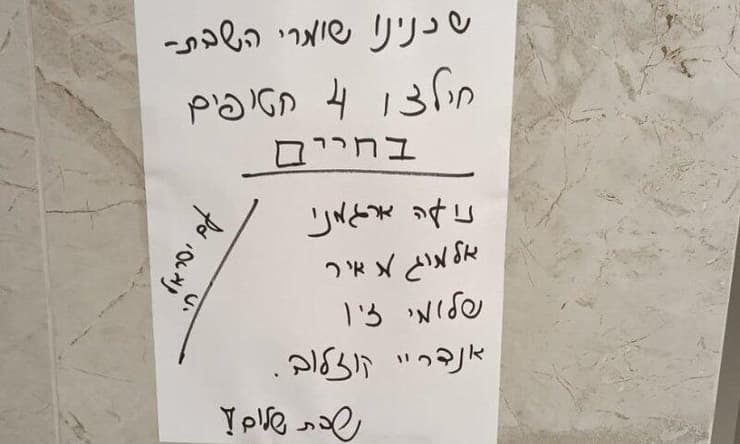 שכנינו שומרי השבת-
חולצו 4 חטופים
בחיים
נועה ארגמני
אלמוג מאיר
שלומי זיו
אנדריי קוזלוב.
עם ישראל חי
שבת שלום!